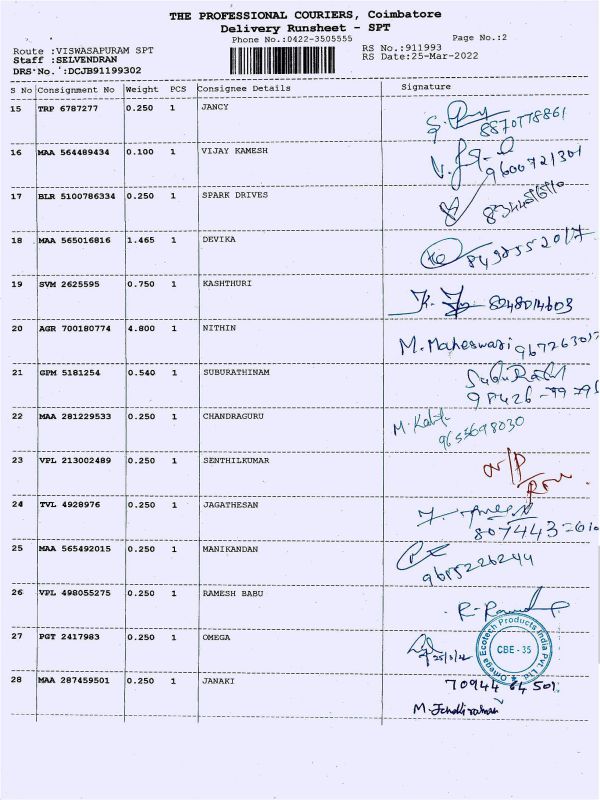 THE PROFESSIONAL COURIERS, Coimbatore
Delivery Runsheet - SPT
Phone No.:0422-3505555 Page No.:2
Route :VISWASAPURAM SPT RS No.:911993
Staff :SELVENDRAN RS Date:25-Mar-2022
DRS No. :DCJB91199302
S No Consignment No Weight PCS Consignee Details Signature
15 TRP 6787277 0.250 1 JANCY
8870778861
16 MAA 564489434 0.100 1 VIJAY KAMESH
9600721301
17 BLR 5100786334 0.250 1 SPARK DRIVES
18 MAA 565016816 1.465 1 DEVIKA
19 SVM 2625595 0.750 1 KASHTHURI
8248014603
20 AGR 700180774 4.800 1 NITHIN
M. Maheswari
21 GPM 5181254 0.540 1 SUBURATHINAM
22 MAA 281229533 0.250 1 CHANDRAGURU
9655698030
23 VPL 213002489 0.250 1 SENTHILKUMAR
N/P
24 TVL 4928976 0.250 1 JAGATHESAN
25 MAA 565492015 0.250 1 MANIKANDAN
26 VPL 498055275 0.250 1 RAMESH BABU
27 PGT 2417983 0.250 1 OMEGA
25/3/22
Omega Ecotech Products India Pvt. Ltd.
CBE - 35
28 MAA 287459501 0.250 1 JANAKI
70944 64 501